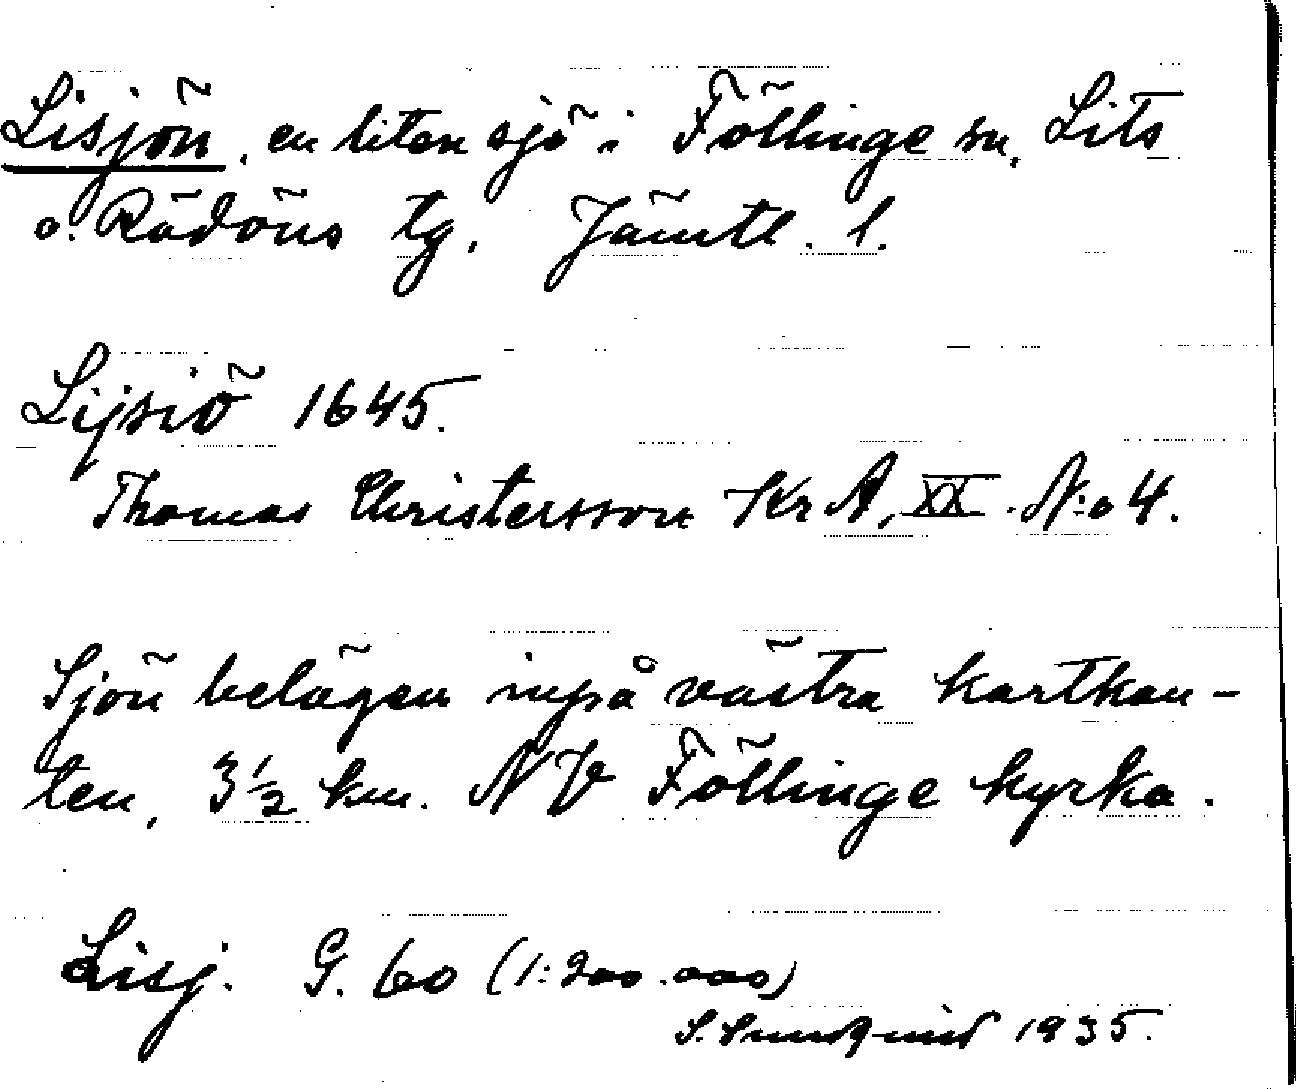 Lisjön, en liten sjö i Föllinge sn, Lits
o. Rödöns tg, Jämtl. l.
Lijsiö 1645.
Thomas Christersson Kr A, XX. N:o 4.
Sjön belägen inpå västra kartkan-
ten, 3½ km. NV Föllinge kyrka.
Lisj. G. 60 (1:200.000)
S. Sundqvist 1935.